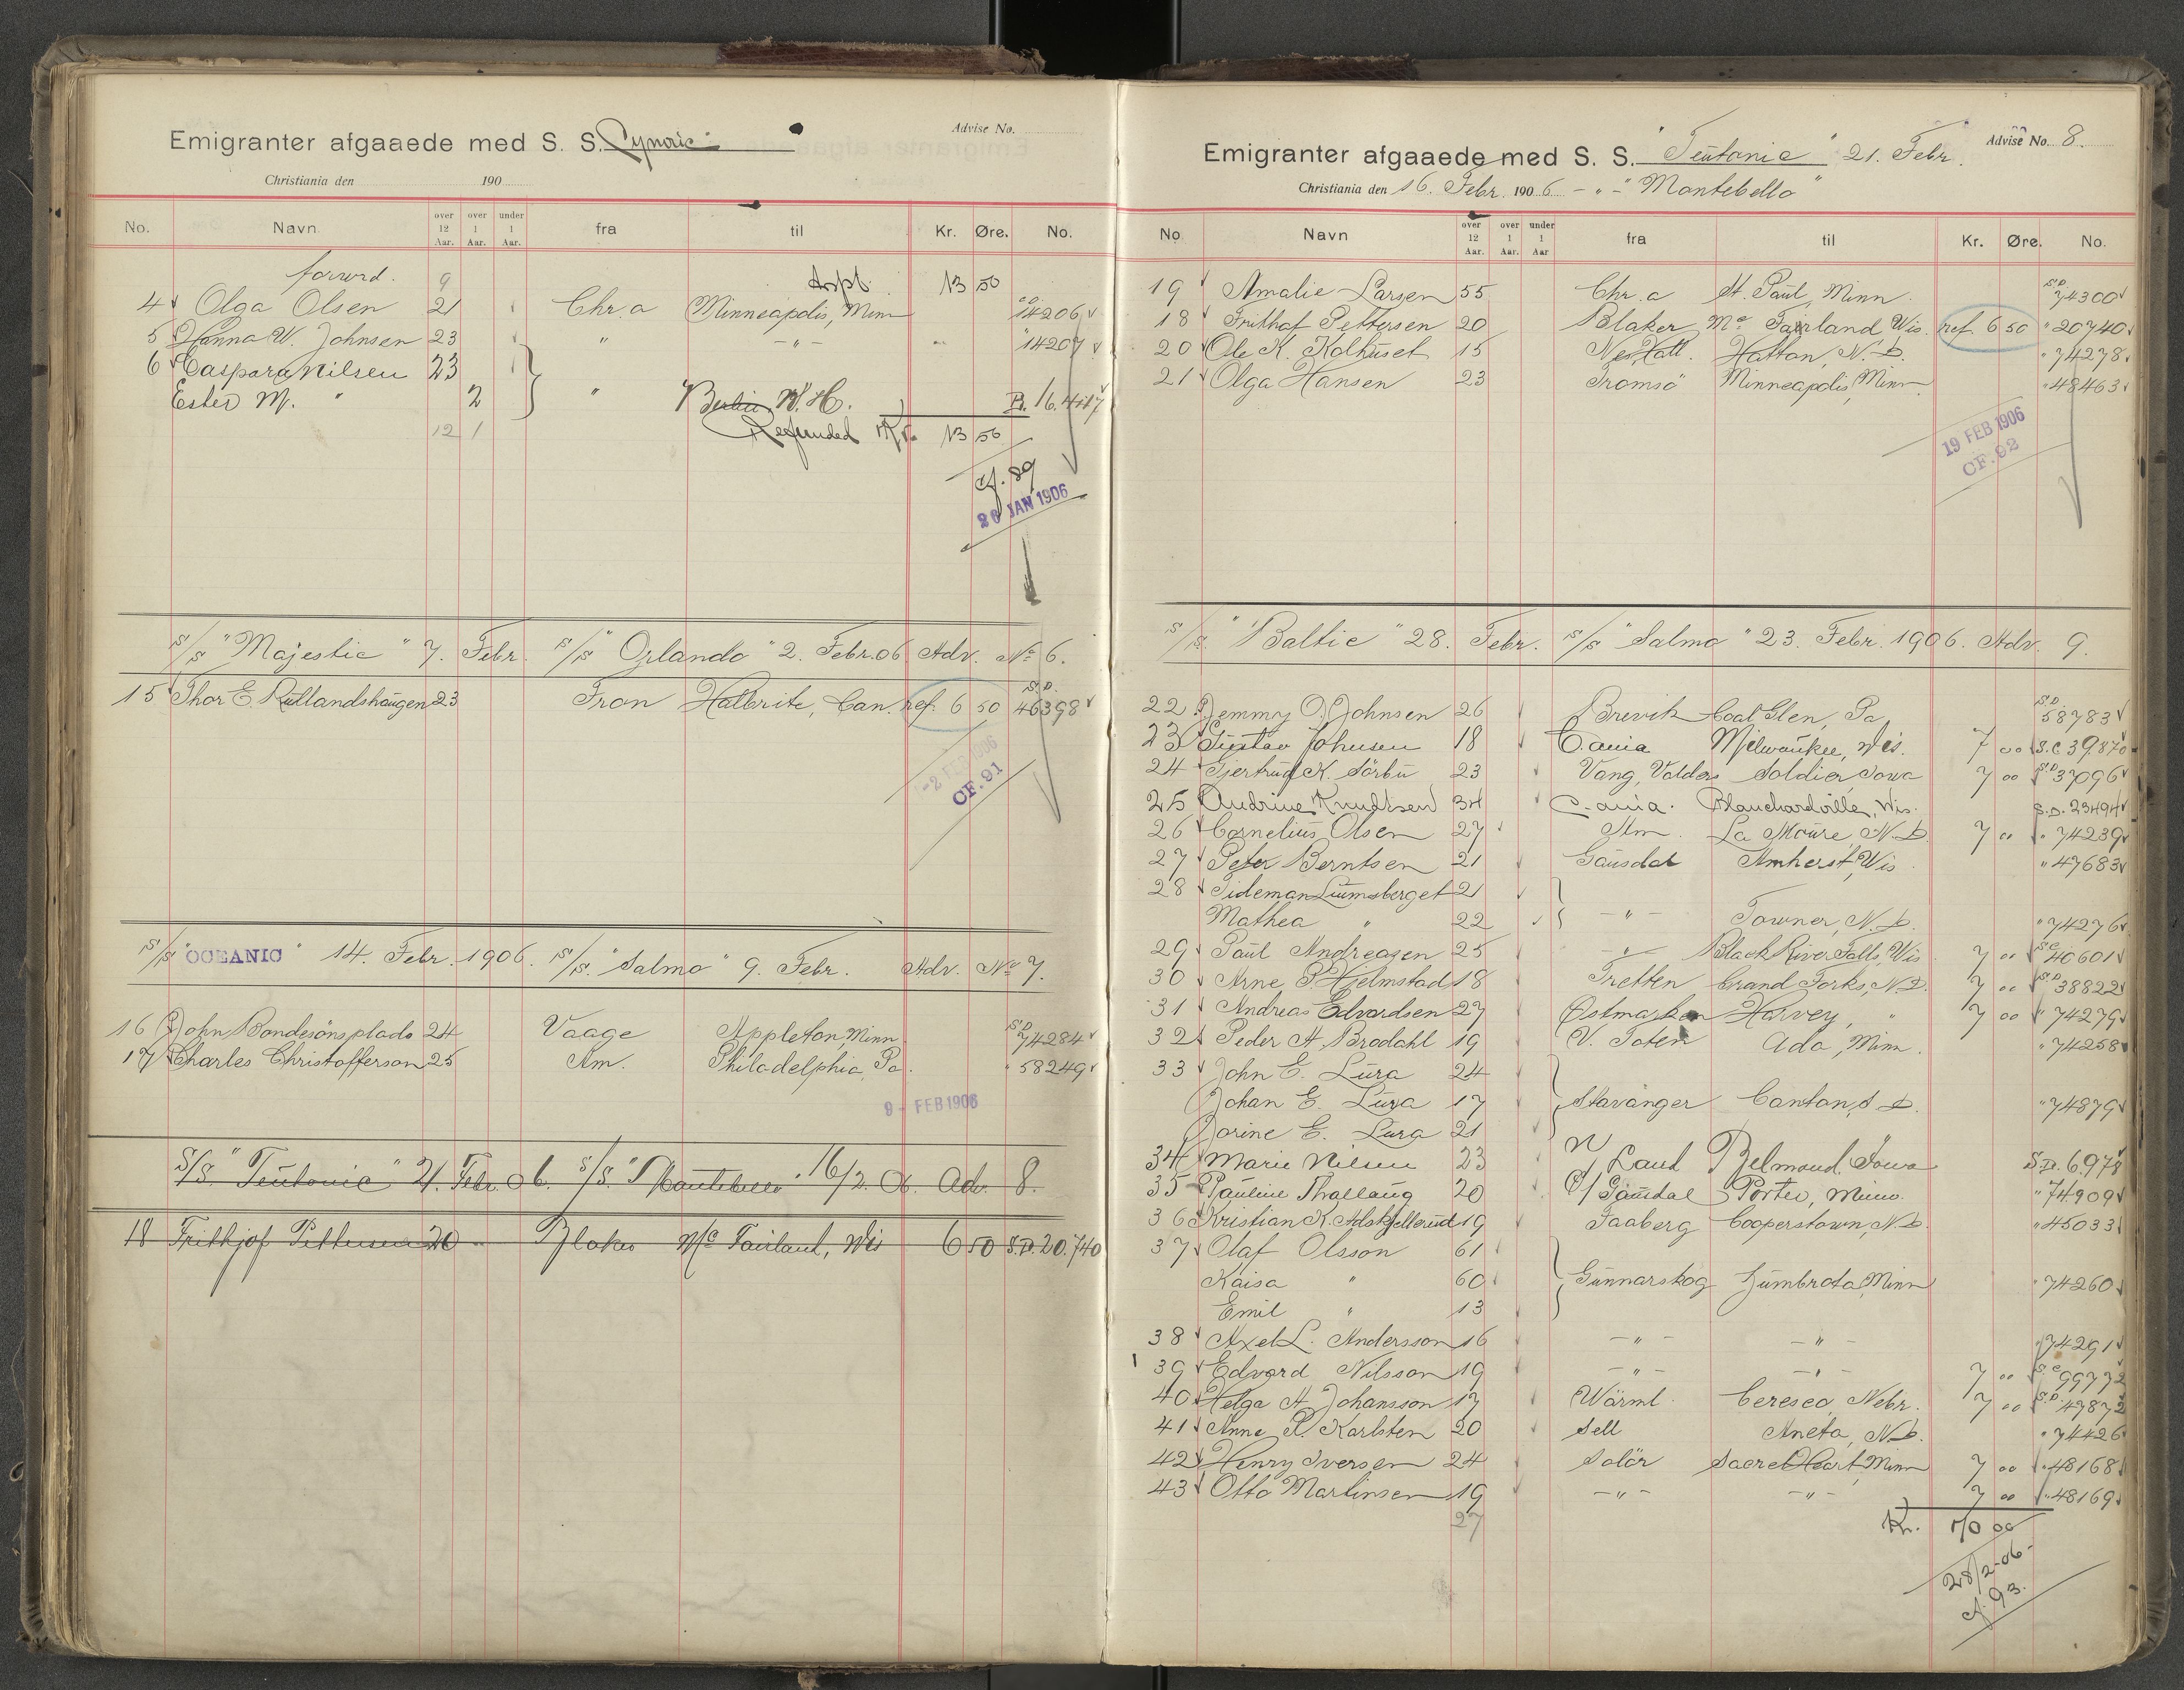 Emigranter afgaaede med S. S. "Cymric"
Advise No.
Christiania den 190
No. Navn. over 12 Aar. over 1 Aar. under 1 Aar. fra til Kr. Øre. No.
forword. 9 13 50
4 Olga Olsen 21 Chr.a Minneapolis, Minn 14206
5 Hanna W. Johnsen 23 " - " - " 14207
6 Caspara Nilsen 23
Ester M. " 2 " Berlin N. H. B. 16.417
12 1 Refunded Kr. 13 50
cf. 89
26 JAN 1906
S/S "Majestic" 7. Febr. S/S "Orlando" 2. Febr. 06 Adv. No 6.
15 Thor E. Rutlandshaugen 23 Fron Halbrite, Can. ref. 6 50 S.D. 46398
-2 FEB 1906
CF. 91
S/S "OCEANIC" 14. Febr. 1906. S/S. "Salmo" 9. Febr. Adv. No 7.
16 John Bondesønsplads 24 Vaage Appleton Minn S.D. 74284
17 Charles Christofferson 25 Am. Philadelphia, Pa. " 58249
9 - FEB 1906
S/S. "Teutonic" 21. Febr. 06. S/S. "Montebello" 16/2. 06. Adv. 8.
18 Frithjof Pettersen 20 Blaker Mc Fairland, Wis 6 50 S.D. 20.740
Emigranter afgaaede med S. S. "Teutonic" 21. Febr.
Advise No. 8.
Christiania den 16. Febr. 1906 - " - "Montebello"
No Navn over 12 Aar. over 1 Aar. under 1 Aar fra til Kr. Øre. No.
19 Amalie Larsen 55 Chr.a St. Paul, Minn. S.D. 74300
18 Frithof Pettersen 20 Blaker Mc Fairland Wis. ref. 6 50 " 20740
20 Ole K. Kolhuset 15 Nes, Hall. Hatton, N. D. " 74278
21 Olga Hansen 23 Tromsö Minneapolis, Minn " 48463
19 FEB 1906
CF. 92
S/S. "Baltic" 28. Febr. S/S "Salmo" 23. Febr. 1906. Adv. 9.
22 Jemmy O. Johnsen 26 Brevik Coal Glen, Pa S.D. 58783
23 Gustav Johnsen 18 C.ania Milwaukee, Wis. 7 00 S.C 39.870
24 Gjertrud K. Sörbu 23 Vang, Valders Soldier, Iowa 7 00 S.D 37096
25 Andrine Knudsen 34 C.ania. Blanchardville, Wis. S.D. 23494
26 Cornelius Olsen 27 Am. La Moure N. D. 7 00 " 74239
27 Peter Berntsen 21 Gausdal Amherst, Wis " 47683
28 Tideman Liumsberget 21
Mathea " 22 - " - Towner, N. D. " 74276
29 Paul Andreasen 25 - " - Black River Falls, Wis 7 00 S.C 40601
30 Arne P. Hjelmstad 18 Tretten Grand Forks, N. D. 7 00 S.D 38822
31 Andreas Edvardsen 27 Østmarken Harvey, " 7 00 " 74279
32 Peder A. Brodahl 19 V. Toten Ada, Minn. " 74258
33 John E. Lura 24
Johan E. Lura 17 Stavanger Canton, S D. " 74879
Jorine E. Lura 21
34 Marie Nilsen 23 N/ Land Belmond, Iowa S.D. 6.978
35 Pauline Thallaug 20 Ø/ Gausdal Porter, Minn. " 74909
36 Kristian K. Adskjellerud 19 Faaberg Cooperstown, N. D. " 45033
37 Olaf Olsson 61
Kaisa " 60 Gunnarskog Zumbrota, Minn " 74260
Emil " 13
38 Axel L. Andersson 16 - " - - " - " 74291
39 Edvard Nilsson 19 - " - - " - 7 00 S.C 99772
40 Helga A. Johansson 17 Wärml. Ceresco, Nebr. 7 00 S.D 47872
41 Anna P. Karlsten 20 Sell Aneta, N. D. " 74426
42 Henry Iversen 24 Solör Sacred Heart, Minn 7 00 " 48168
43 Otto Martinsen 19 - " - - " - 7 00 " 48169
27 Kr. 70 00
28/2-06-
cf. 93.